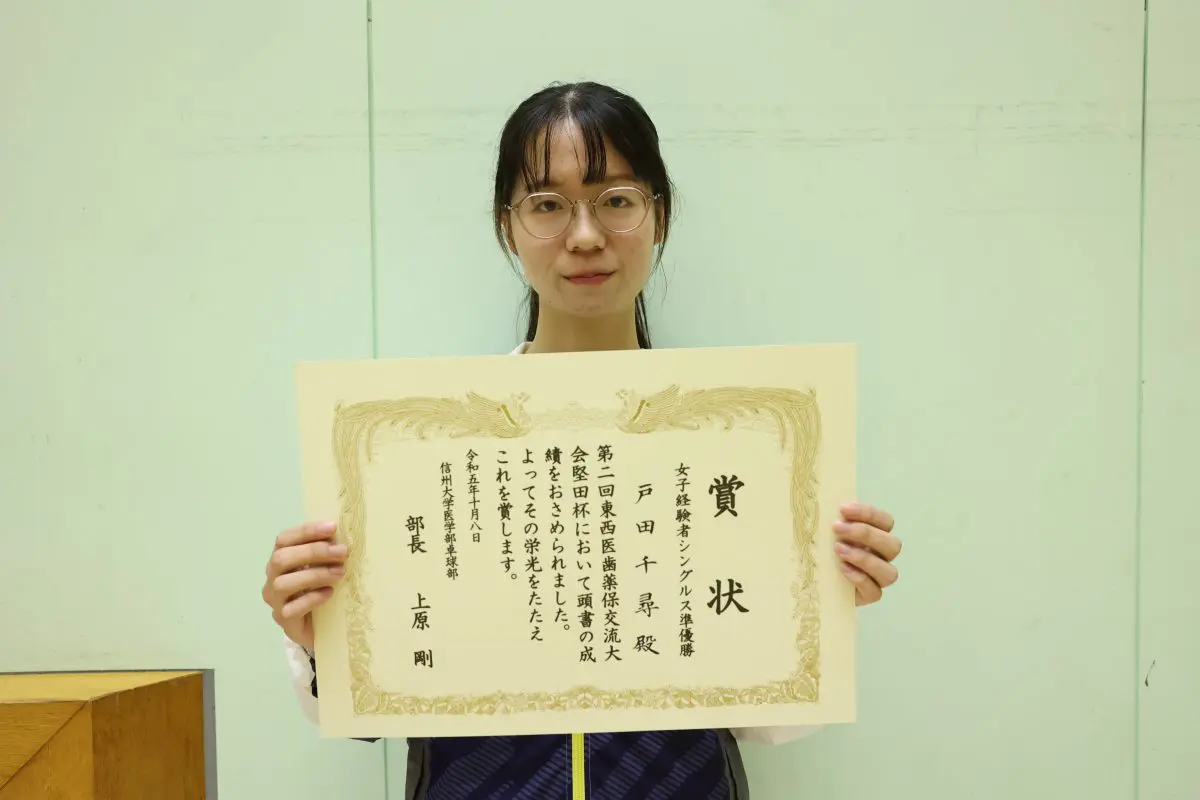 賞状
女子経験者シングルス準優勝
戸田千尋殿
第二回東西医歯薬保交流大
会堅田杯において頭書の成
績をおさめられました。
よってその栄光をたたえ
これを賞します。
令和五年十月八日
信州大学医学部卓球部
部長 上原 剛